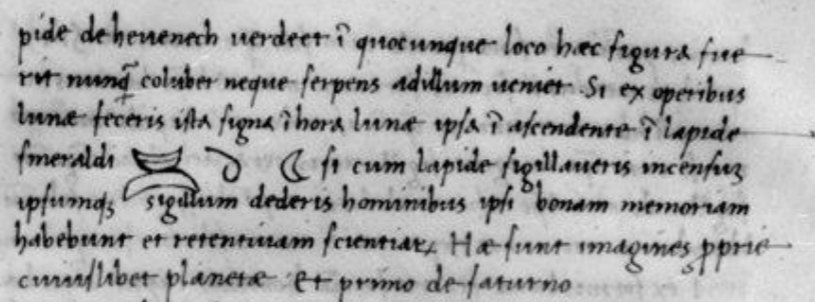 pide de hevenech verdeet ĩ quocunque loco hæc figura fue
rit nunq̃ coluber neque serpens ad illum veniet Si ex operibus
lunæ feceris ista signa ĩ hora lunæ ipsa ĩ ascendente ĩ lapide
smeraldi si cum lapide sigillaveris incensuꝫ
ipsumqꝫ sigillum dederis hominibus ipsi bonam memoriam
habebunt et retentivam scientiaꝝ Hæ sunt imagines ꝓprie
cuiuslibet planetæ Et primo de saturno